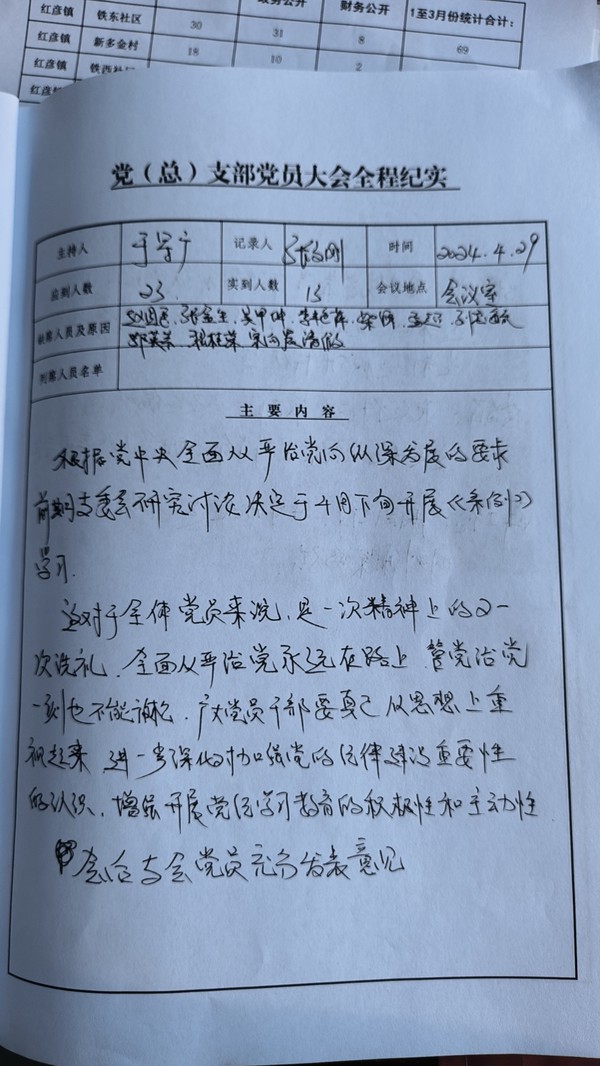 政务公开 财务公开 1至3月份统计合计：
红彦镇 铁东社区 30 31 8
红彦镇 新多金村 18 10 2 69
红彦镇 铁西社区
红彦
党（总）支部党员大会全程纪实
主持人 于学广 记录人 时间 2024.4.29
应到人数 23 实到人数 13 会议地点 会议室
缺席人员及原因
列席人员名单
主要内容
根据党中央全面从严治党向纵深发展的要求
前期支委会研究讨论决定于4月下旬开展《条例》
学习.
这对于全体党员来说,是一次精神上的又一
次洗礼.全面从严治党永远在路上 管党治党
一刻也不能放松.广大党员干部要真正从思想上重
视起来 进一步深化加强党的纪律建设重要性
的认识.增强开展党纪学习教育的积极性和主动性
会后与会党员充分发表意见